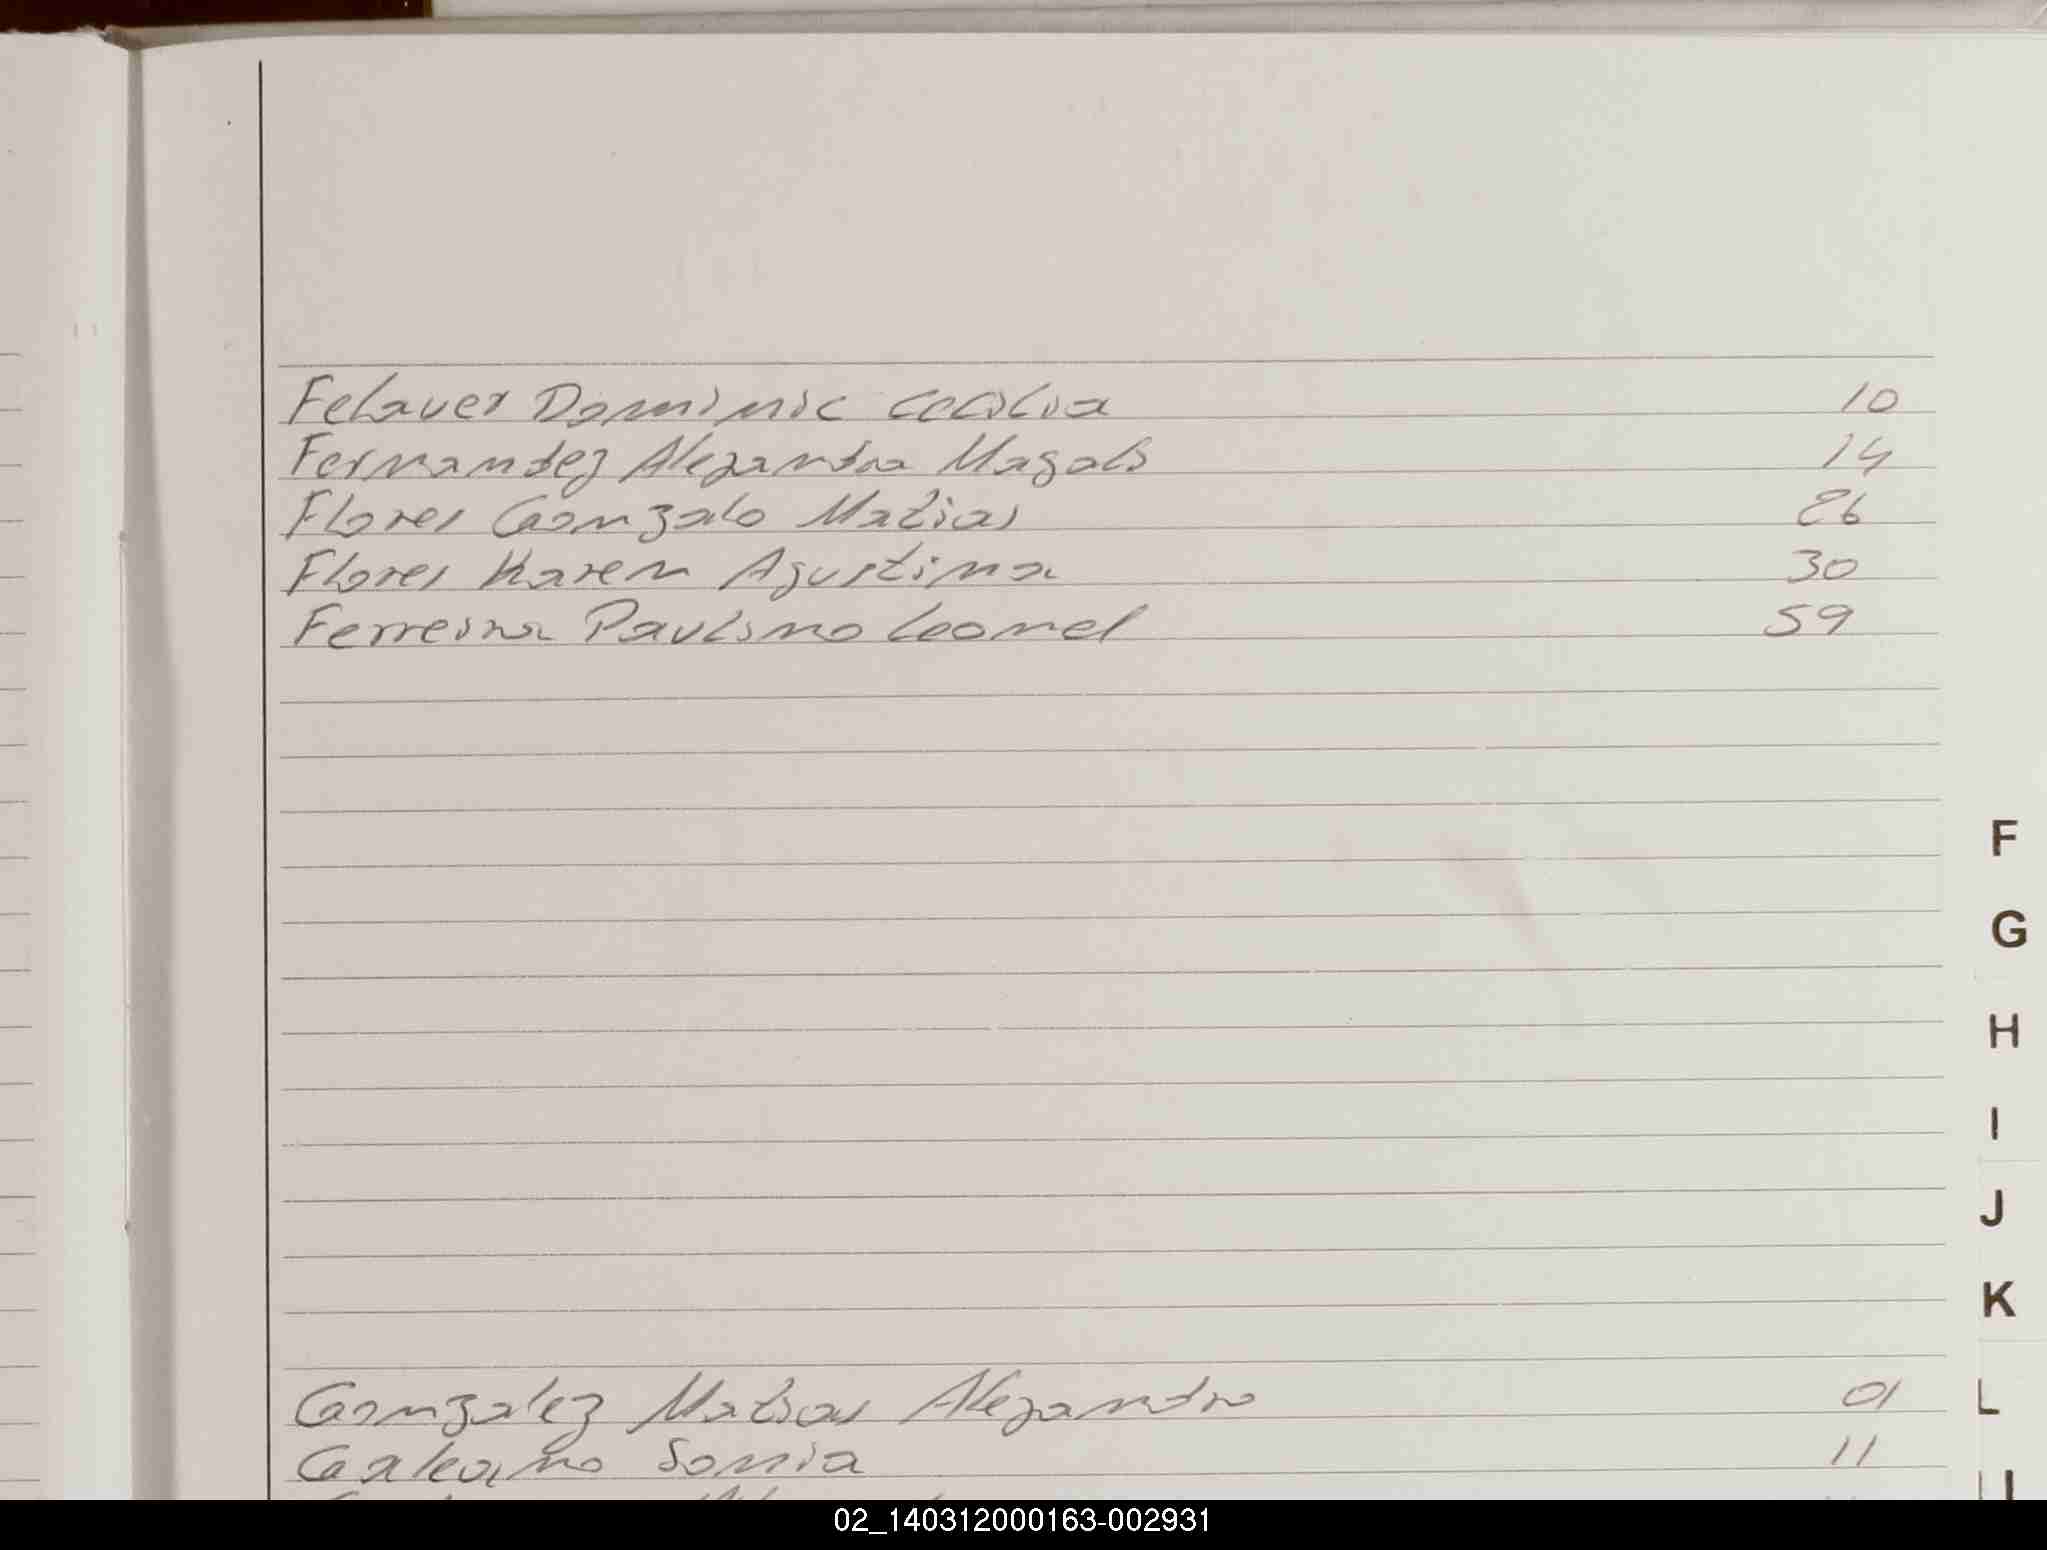 Felaver Dominic Cecilia 10
Fernandez Alejandra Magali 14
Flores Gonzalo Matias 26
Flores Karen Agustina 30
Ferreira Paulino Leonel 59
F
G
H
I
J
K
Gonzalez Matias Alejandro 01
L
Galeano Sonia 11
02_140312000163-002931